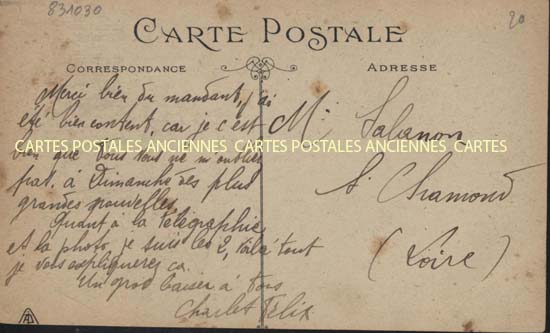 831030
20
CARTE POSTALE
CORRESPONDANCE
ADRESSE
Merci bien du mandant, j'ai
été bien content, car je c'est
bien que vous tous ne m'oubliez
pas. à Dimanche des plus
grandes nouvelles.
Quant à la télégraphie
et la photo, je suis les 2, à tout
je vous expliquerez ça.
Un gros baiser à tous
Charlet Felix
M. Sabanon
St Chamond
(Loire)
CARTES POSTALES ANCIENNES CARTES POSTALES ANCIENNES CARTES